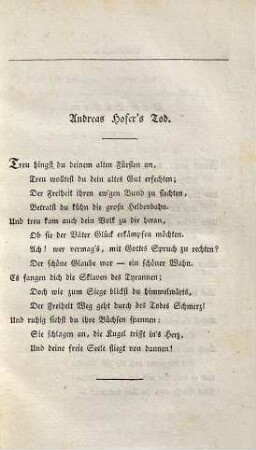 Andreas Hofer's Tod.
Treu hingst du deinem alten Fürsten an,
Treu wolltest du dein altes Gut erfechten;
Der Freiheit ihren ew'gen Bund zu flechten,
Betratst du kühn die große Heldenbahn.
Und treu kam auch dein Volk zu dir heran,
Ob sie der Väter Glück erkämpfen möchten.
Ach! wer vermag's, mit Gottes Spruch zu rechten?
Der schöne Glaube war — ein schöner Wahn.
Es fangen dich die Sklaven des Tyrannen;
Doch wie zum Siege blickst du himmelwärts,
Der Freiheit Weg geht durch des Todes Schmerz!
Und ruhig siehst du ihre Büchsen spannen;
Sie schlagen an, die Kugel trifft in's Herz,
Und deine freie Seele fliegt von dannen!